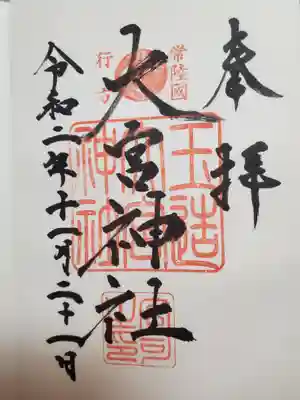 奉拝
常陸國
行方
大宮神社
玉造
神社
令和二年十一月二十一日